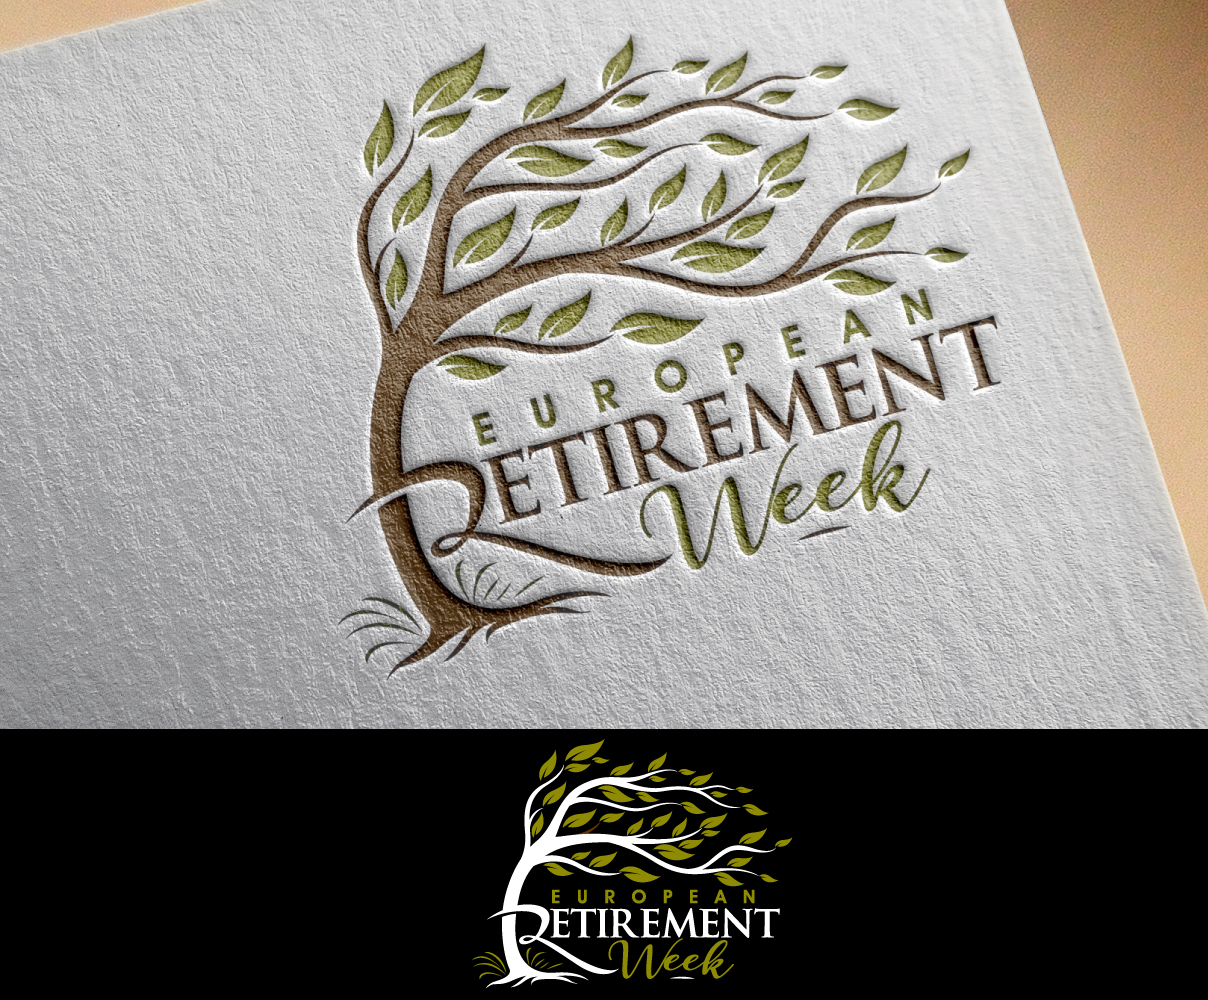 EUROPEAN
RETIREMENT
Week
EUROPEAN
RETIREMENT
Week